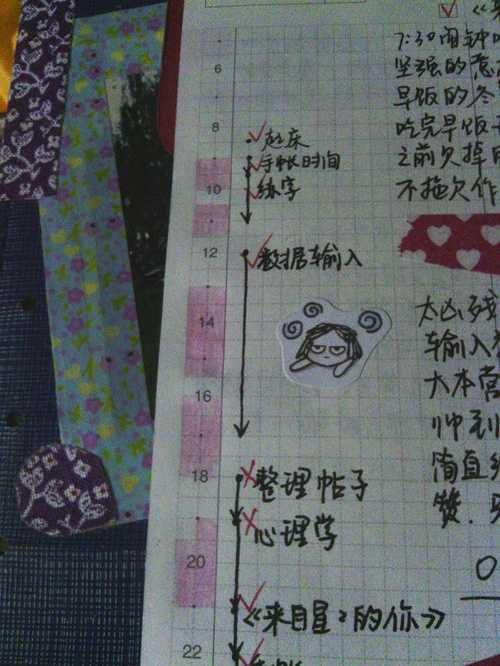 6
7:30闹钟
坚强的
早饭的冬
8
吃完早饭
起床
手帐时间
之前欠掉
10
练字
不拖欠作
12
数据输入
太凶残
14
输入
大本营
16
帅到
简直
18
整理帖子
赞.
心理学
20
0
《来自星2的你》
22